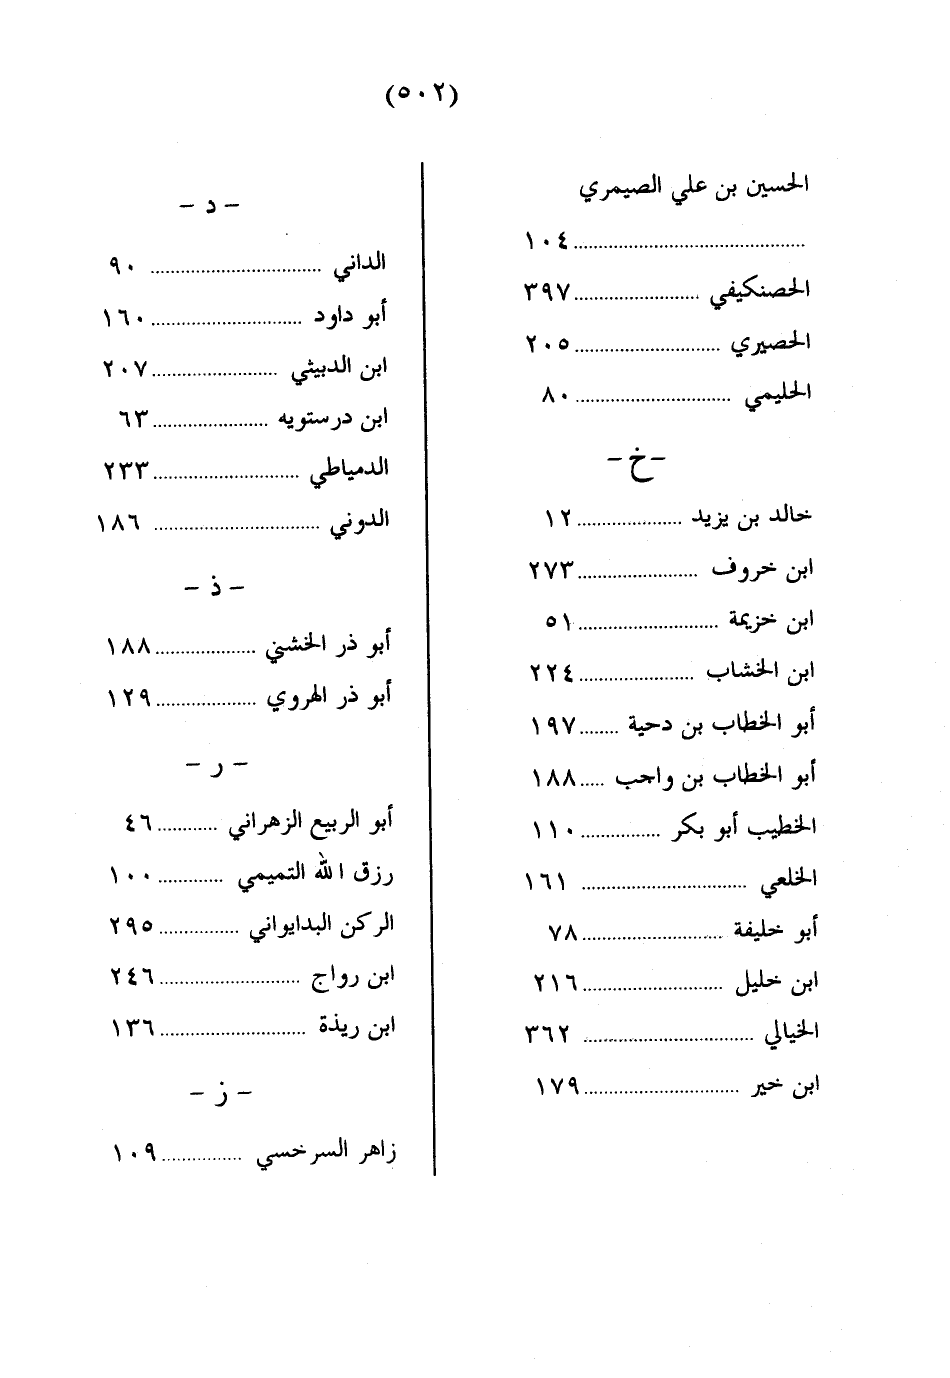 (٥٠٢)
الحسين بن علي الصيمري
........................ ١٠٤
الحصنكيفي ........................ ٣٩٧
الحصيري ........................ ٢٠٥
الحليمي ........................ ٨٠
- خ -
خالد بن يزيد ........................ ١٢
ابن خروف ........................ ٢٧٣
ابن خزيمة ........................ ٥١
ابن الخشاب ........................ ٢٢٤
أبو الخطاب بن دحية ........ ١٩٧
أبو الخطاب بن واجب ..... ١٨٨
الخطيب أبو بكر ................ ١١٠
الخلعي ........................ ١٦١
أبو خليفة ........................ ٧٨
ابن خليل ........................ ٢١٦
الخيالي ........................ ٣٦٢
ابن خير ........................ ١٧٩
- د -
الداني ........................ ٩٠
أبو داود ........................ ١٦٠
ابن الدبيثي ........................ ٢٠٧
ابن درستويه ........................ ٦٣
الدمياطي ........................ ٢٣٣
الدوني ........................ ١٨٦
- ذ -
أبو ذر الخشني .................... ١٨٨
أبو ذر الهروي .................... ١٢٩
- ر -
أبو الربيع الزهراني ............ ٤٦
رزق الله التميمي ............. ١٠٠
الركن البدايواني ................ ٢٩٥
ابن رواج ........................ ٢٤٦
ابن ريذة ........................ ١٣٦
- ز -
زاهر السرخسي ................ ١٠٩